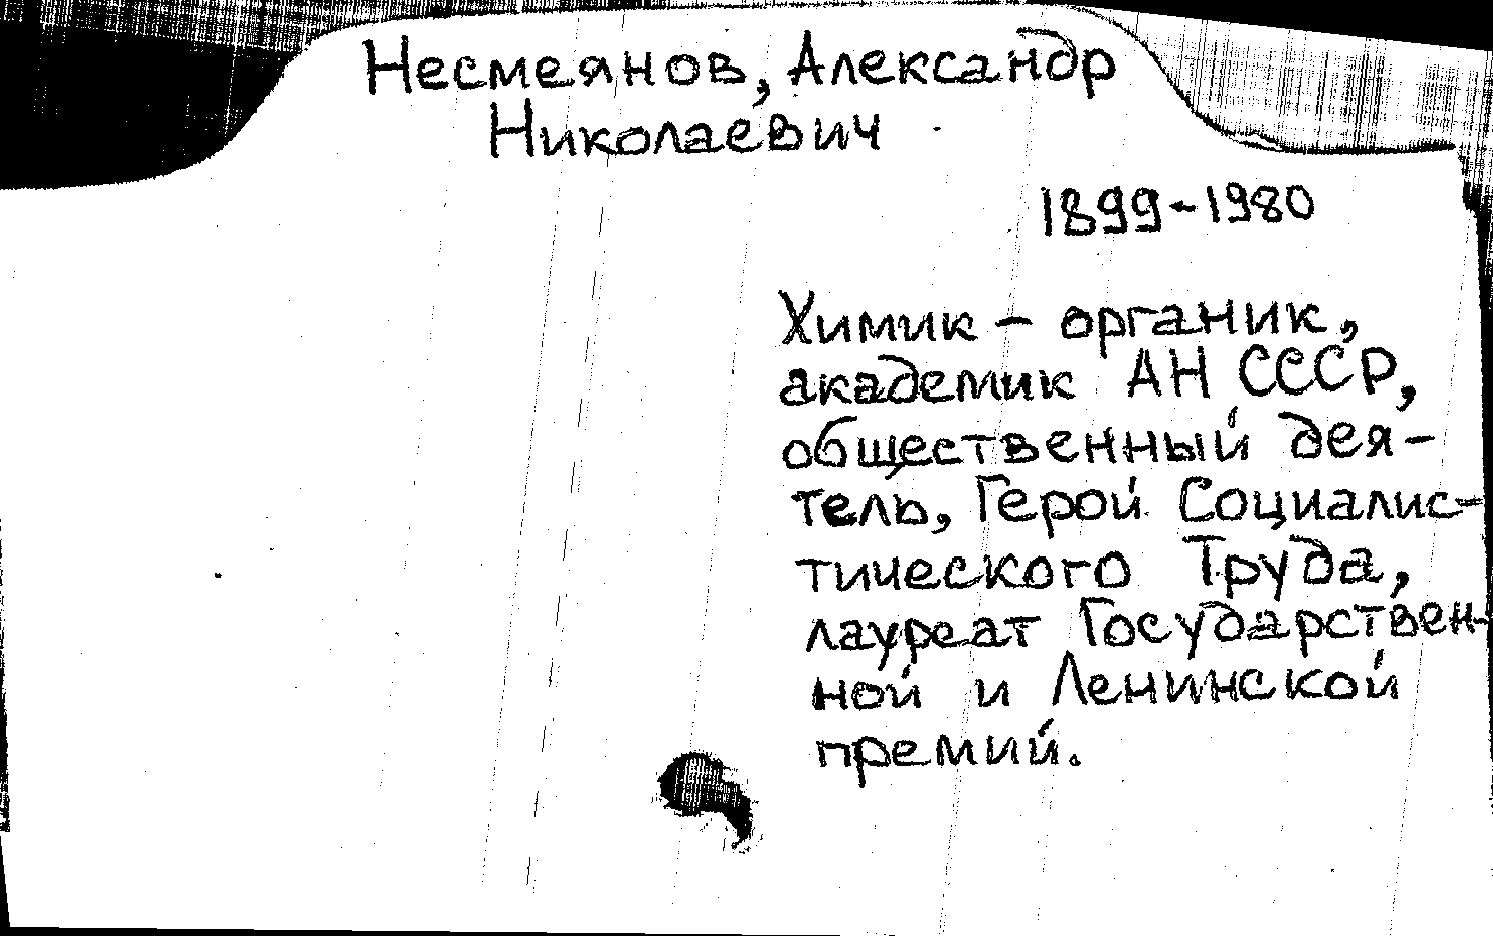 Несмеянов, Александр
Николаевич
1899-1980
Химик - органик,
академик АН СССР,
общественный дея-
тель, Герой Социалис-
тического Труда,
лауреат Государствен-
ной и Ленинской
премий.